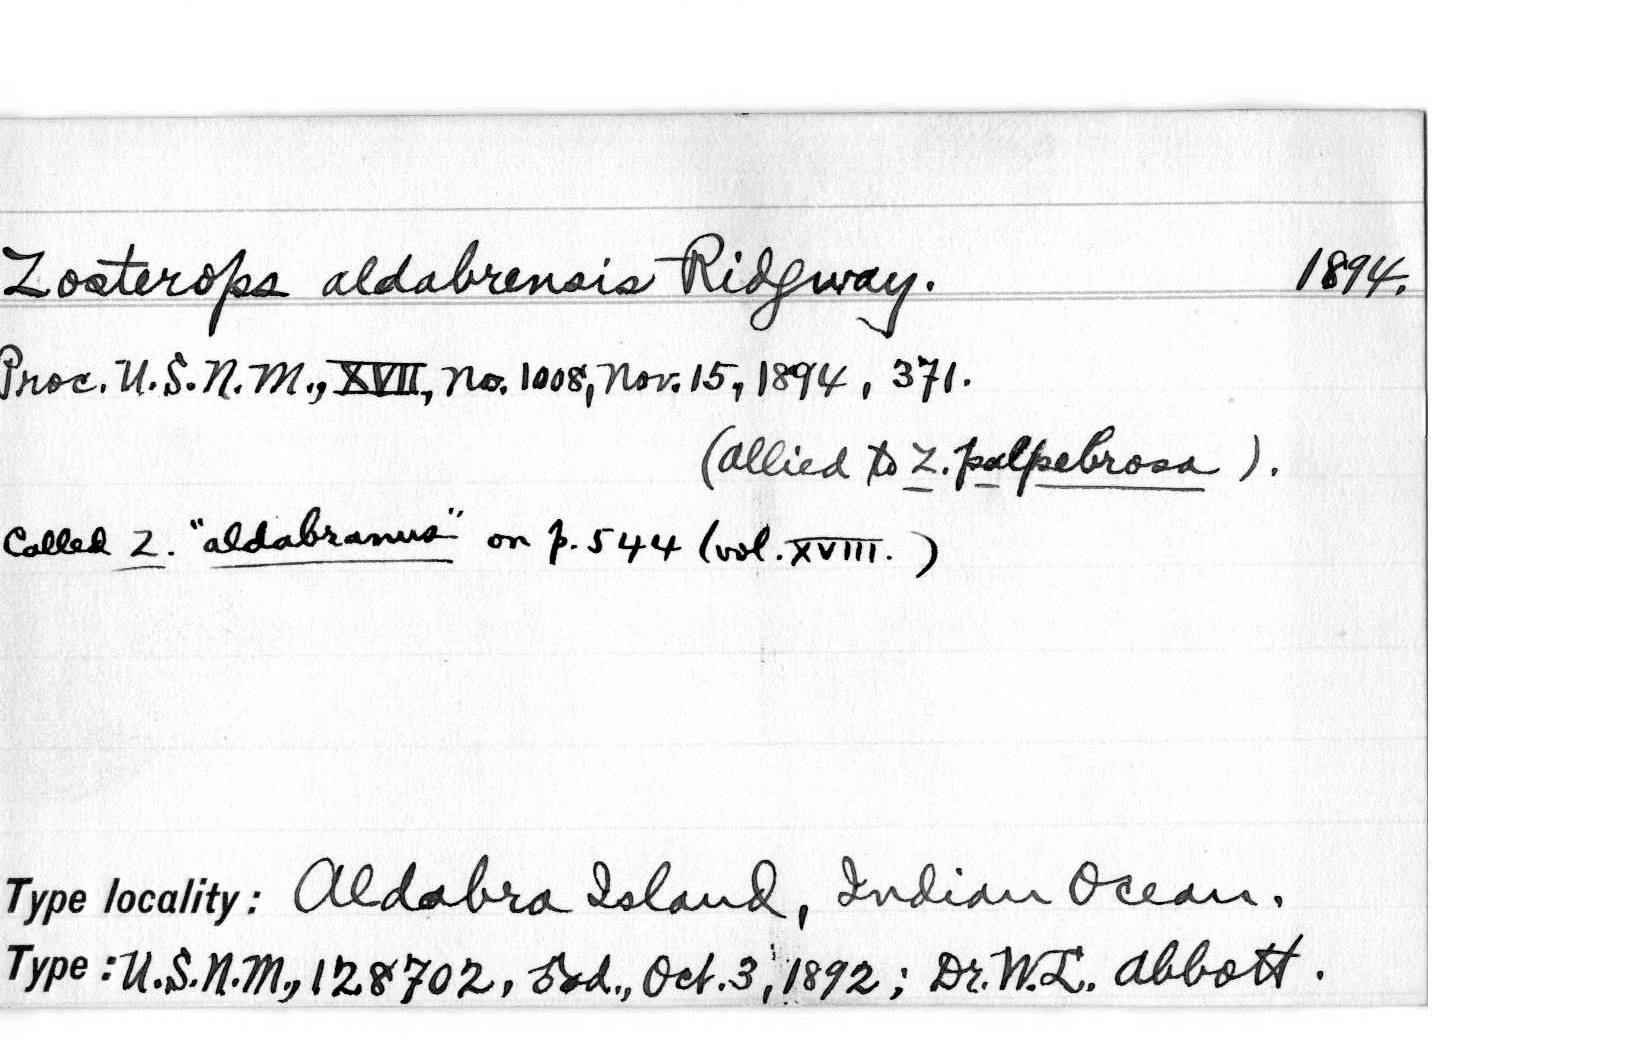 Zosterops aldabrensis Ridgway. 1894.
Proc. U.S.N.M., XVII, No. 1008, Nov. 15, 1894, 371.
(Allied to Z. palpebrosa).
Called Z. "aldabranus" on p. 544 (vol. XVIII.)
Type locality: Aldabra Island, Indian Ocean.
Type: U.S.N.M., 128702, ad., Oct. 3, 1892; Dr. W.L. Abbott.